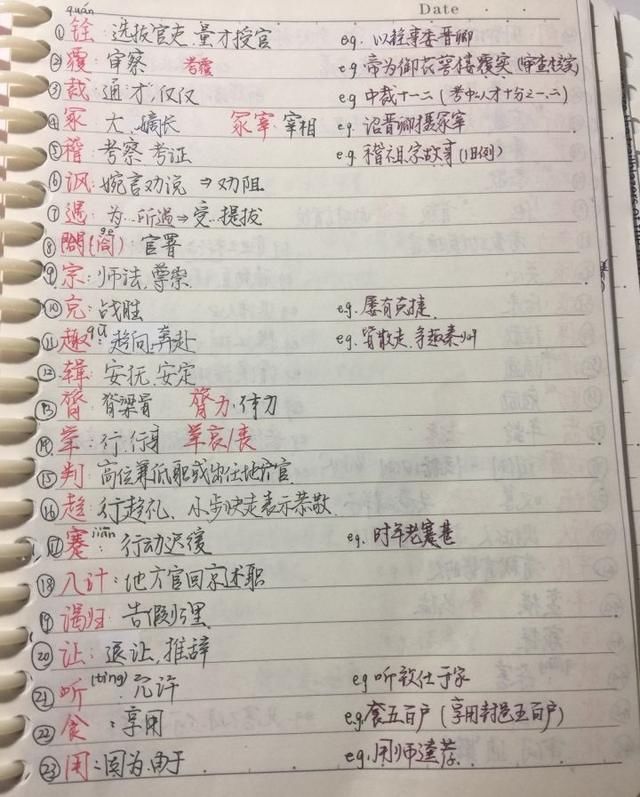 Date
quán
① 铨：选拔官吏,量才授官 eg. 以铨事委晋卿
② 覆 审察 考覆 eg 帝为御衣箸楼覆实(审查核实)
③ 裁 通"才",仅仅 eg 中裁十一二(考中人才十分之一、二)
④ 冢 大、嫡长 冢宰 宰相 eg. 诏晋卿摄冢宰
⑤ 稽：考察 考证 eg. 稽祖宗故事(旧例)
⑥ 讽：婉言劝说 ⇒ 劝阻
⑦ 遇：为…所遇 ⇒ 受…提拔
⑧ 閤(阁) 官署
⑨ 宗：师法,尊崇
⑩ 克：战胜 eg. 屡有克捷
⑪ 趣 qū：趋向 奔赴 eg. 皆散走,争趣秦州
⑫ 辑：安抚、安定
⑬ 膂：脊梁骨 膂力 体力
⑭ 举：行,行身 举哀/丧
⑮ 判：高位兼低职或出任地方官
⑯ 趋：行趋礼、小步快走表示恭敬
⑰ 蹇 jiǎn：行动迟缓 eg. 时年老蹇甚
⑱ 入计：地方官回京述职
⑲ 谒归：告假归里
⑳ 让：退让,推辞
㉑ 听(tīng)：允许 eg 听致仕于家
㉒ 食：享用 eg. 食五百户(享用封邑五百户)
㉓ 用：因为.由于 eg. 用师逵荐